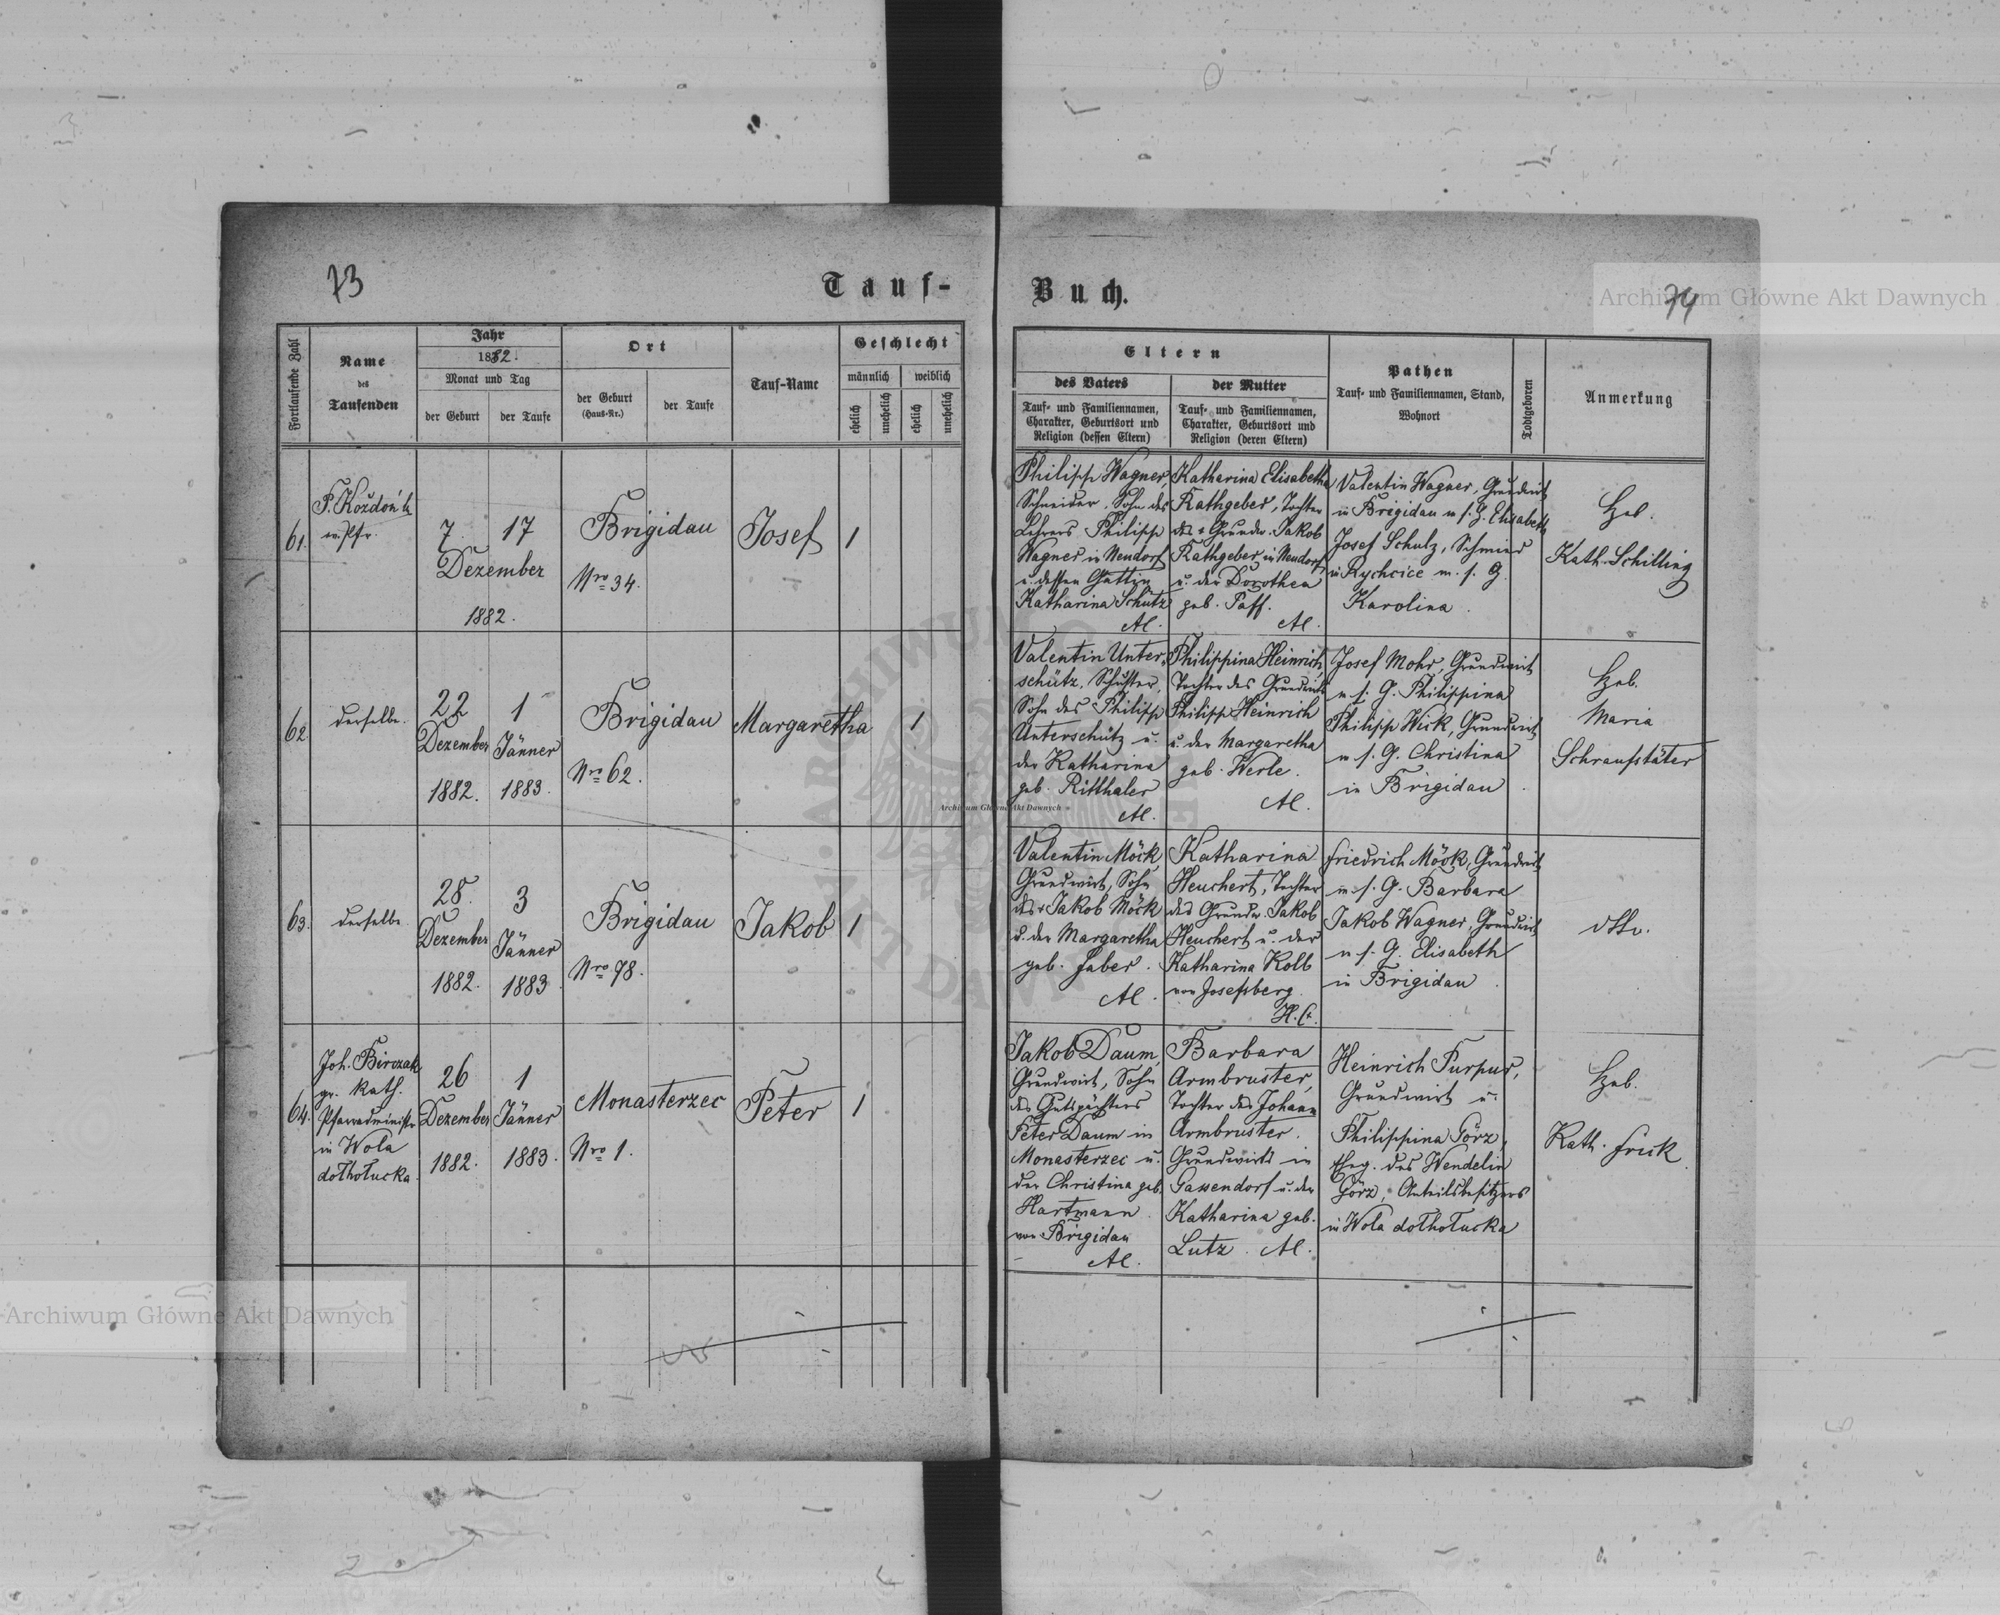 73
Tauf-
Buch.
74
Archiwum Główne Akt Dawnych
Fortlaufende Zahl
Name
des
Taufenden
Jahr
1882.
Monat und Tag
der Geburt
der Taufe
Ort
der Geburt
(Haus-Nr.)
der Taufe
Tauf-Name
Geschlecht
männlich
weiblich
ehelich
unehelich
ehelich
unehelich
Eltern
des Vaters
Tauf- und Familiennamen,
Charakter, Geburtsort und
Religion (dessen Eltern)
der Mutter
Tauf- und Familiennamen,
Charakter, Geburtsort und
Religion (deren Eltern)
Pathen
Tauf- und Familiennamen, Stand,
Wohnort
Todtgeboren
Anmerkung
61.
F. Koždoń
Pfr.
7.
17
Dezember
1882.
Brigidau
Nro 34.
Josef
1
Philipp Wagner,
Schneider, Sohn des
Lehrers Philipp
Wagner in Neudorf
u. dessen Gattin
Katharina Schütz
AC.
Katharina Elisabetha
Rathgeber, Tochter
des + Grundw. Jakob
Rathgeber in Neudorf
u. der Dorothea
geb. Paff.
AC.
Valentin Wagner, Grundwirt
in Brigidau u. s. G. Elisabeth
Josef Schulz, Schmied
in Rychcice m. s. G.
Karolina.
Heb.
Kath. Schilling
62.
derselbe.
22
Dezember
1882.
1
Jänner
1883.
Brigidau
Nro 62.
Margaretha
1
Valentin Unter-
schütz, Schuster,
Sohn des Philipp
Unterschütz u.
der Katharina
geb. Ritthaler
AC.
Philippina Heinrich,
Tochter des Grundwirts
Philipp Heinrich
u. der Margaretha
geb. Werle.
AC.
Josef Mohr, Grundwirt
u. s. G. Philippina
Philipp Wick, Grundwirt
u. s. G. Christina
in Brigidau.
Heb.
Maria
Schraufstäter
63.
derselbe.
28.
Dezember
1882.
3
Jänner
1883
Brigidau
Nro 78.
Jakob
1
Valentin Möck,
Grundwirt, Sohn
des + Jakob Möck
u. der Margaretha
geb. Faber.
AC.
Katharina
Heuchert, Tochter
des Grundw. Jakob
Heuchert u. der
Katharina Kolb
von Josefsberg
H.C.
Friedrich Möck, Grundwirt
u. s. G. Barbara
Jakob Wagner, Grundwirt
u. s. G. Elisabeth
in Brigidau.
dtto.
64.
Joh. Birczak
gr. kath.
Pfarradministr.
in Wola
dołhołucka.
26
Dezember
1882.
1
Jänner
1883.
Monasterzec
Nro 1.
Peter
1
Jakob Daum,
Grundwirt, Sohn
des Gutspächters
Peter Daum in
Monasterzec u.
der Christina geb.
Hartmann
von Brigidau
AC.
Barbara
Armbruster,
Tochter des Johann
Armbruster.
Grundwirts in
Gassendorf u. der
Katharina geb.
Lutz. AC.
Heinrich Purpur,
Grundwirt u.
Philippina Görz,
Ehg. des Wendelin
Görz, Anteilsbesitzers
in Wola dołhołucka
Heb.
Kath. Frick.
Archiwum Główne Akt Dawnych
Archiwum Główne Akt Dawnych